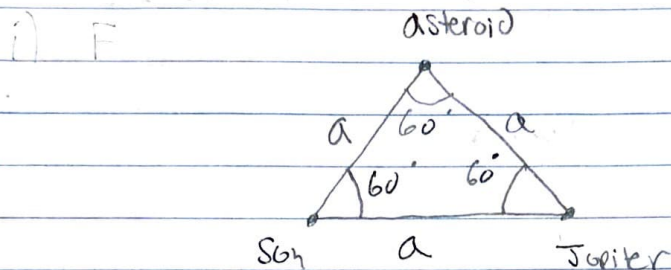 i) F
asteroid
a 60° a
60° 60°
Sun a Jupiter